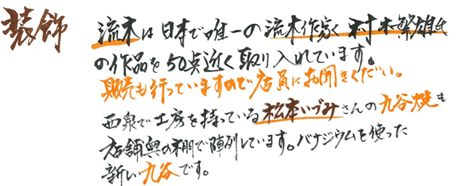 装飾
流木は日本で唯一の流木作家 村木繁雄氏
の作品を50点近く取り入れています。
販売も行っていますので店員にお聞きください。
西泉で工房を持っている松本いづみさんの九谷焼も
店舗奥の棚で陳列しています。バナジウムを使った
新しい九谷です。